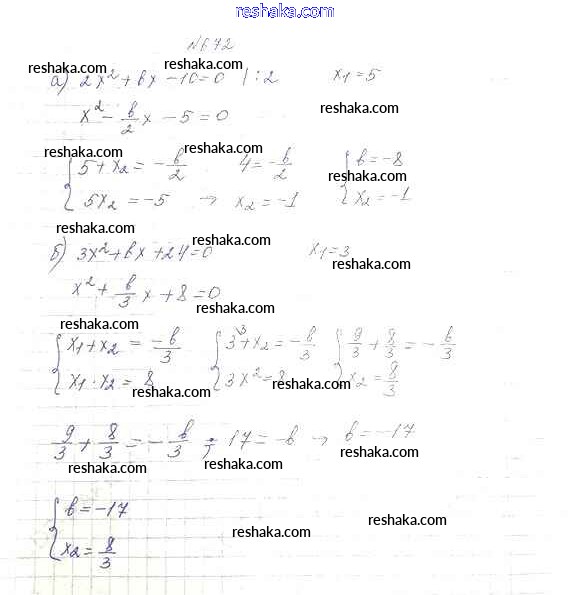 reshaka.com
№672
reshaka.com reshaka.com
а) 2x² + bx - 10 = 0 | : 2 x₁ = 5
reshaka.com
x² - b/2 x - 5 = 0
reshaka.com reshaka.com
{ 5 + x₂ = - b/2 4 = - b/2 { b = -8
reshaka.com
5x₂ = -5 → x₂ = -1 x₂ = -1
reshaka.com reshaka.com
б) 3x² + bx + 24 = 0 x₁ = 3
reshaka.com
x² + b/3 x + 8 = 0
reshaka.com reshaka.com
{ x₁ + x₂ = -b/3 { 3\3 + x₂ = - b/3 { 9/3 + 8/3 = - b/3
x₁ · x₂ = 8 3x² = 8 x₂ = 8/3
reshaka.com reshaka.com
9/3 + 8/3 = - b/3 ; 17 = -b → b = -17
reshaka.com reshaka.com reshaka.com
{ b = -17
reshaka.com reshaka.com
x₂ = 8/3